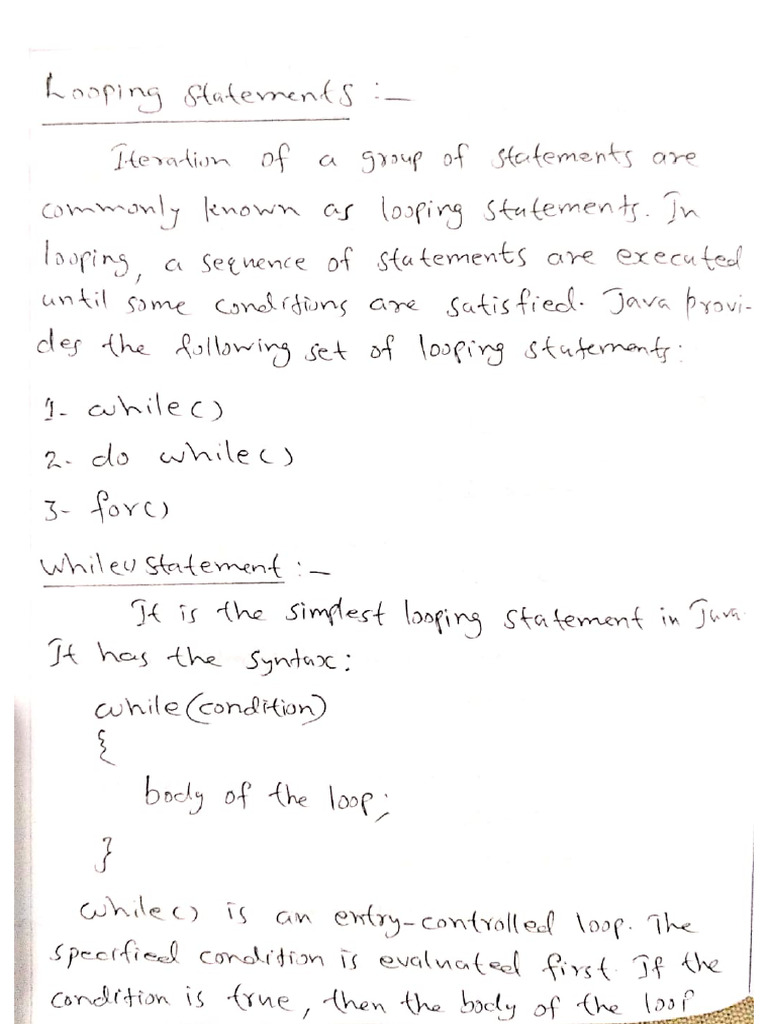 Looping Statements :-
Iteration of a group of statements are
commonly known as looping statements. In
looping, a sequence of statements are executed
until some conditions are satisfied. Java provi-
des the following set of looping statements:
1- while()
2- do while()
3- for()
while() statement :-
It is the simplest looping statement in Java.
It has the syntax:
while(condition)
{
body of the loop;
}
while() is an entry-controlled loop. The
specified condition is evaluated first. If the
condition is true, then the body of the loop